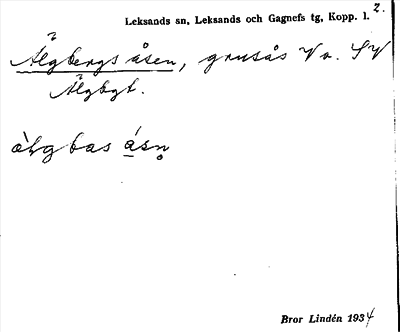 Leksands sn, Leksands och Gagnefs tg, Kopp. l. 2.
Älgbergsåsen, grusås V o. SV
Älgbgt.
àlgbas ásn̥
Bror Lindén 1934